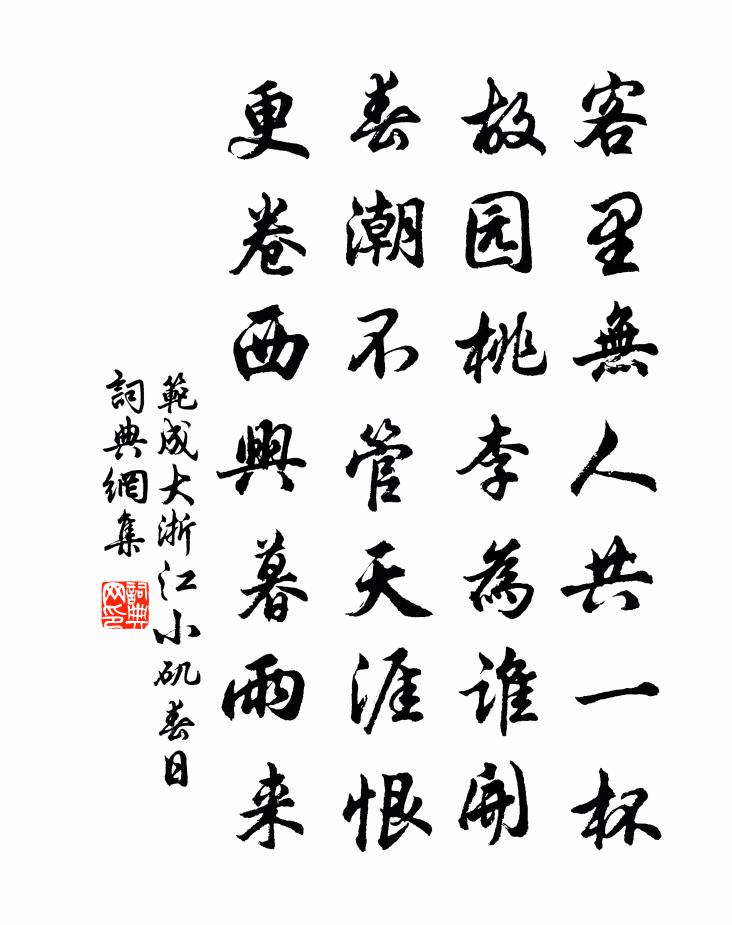 客里無人共一杯
故园桃李為谁開
春潮不管天涯恨
更卷西興暮雨来
範成大浙江小矶春日
詞典網集
詞典
网印